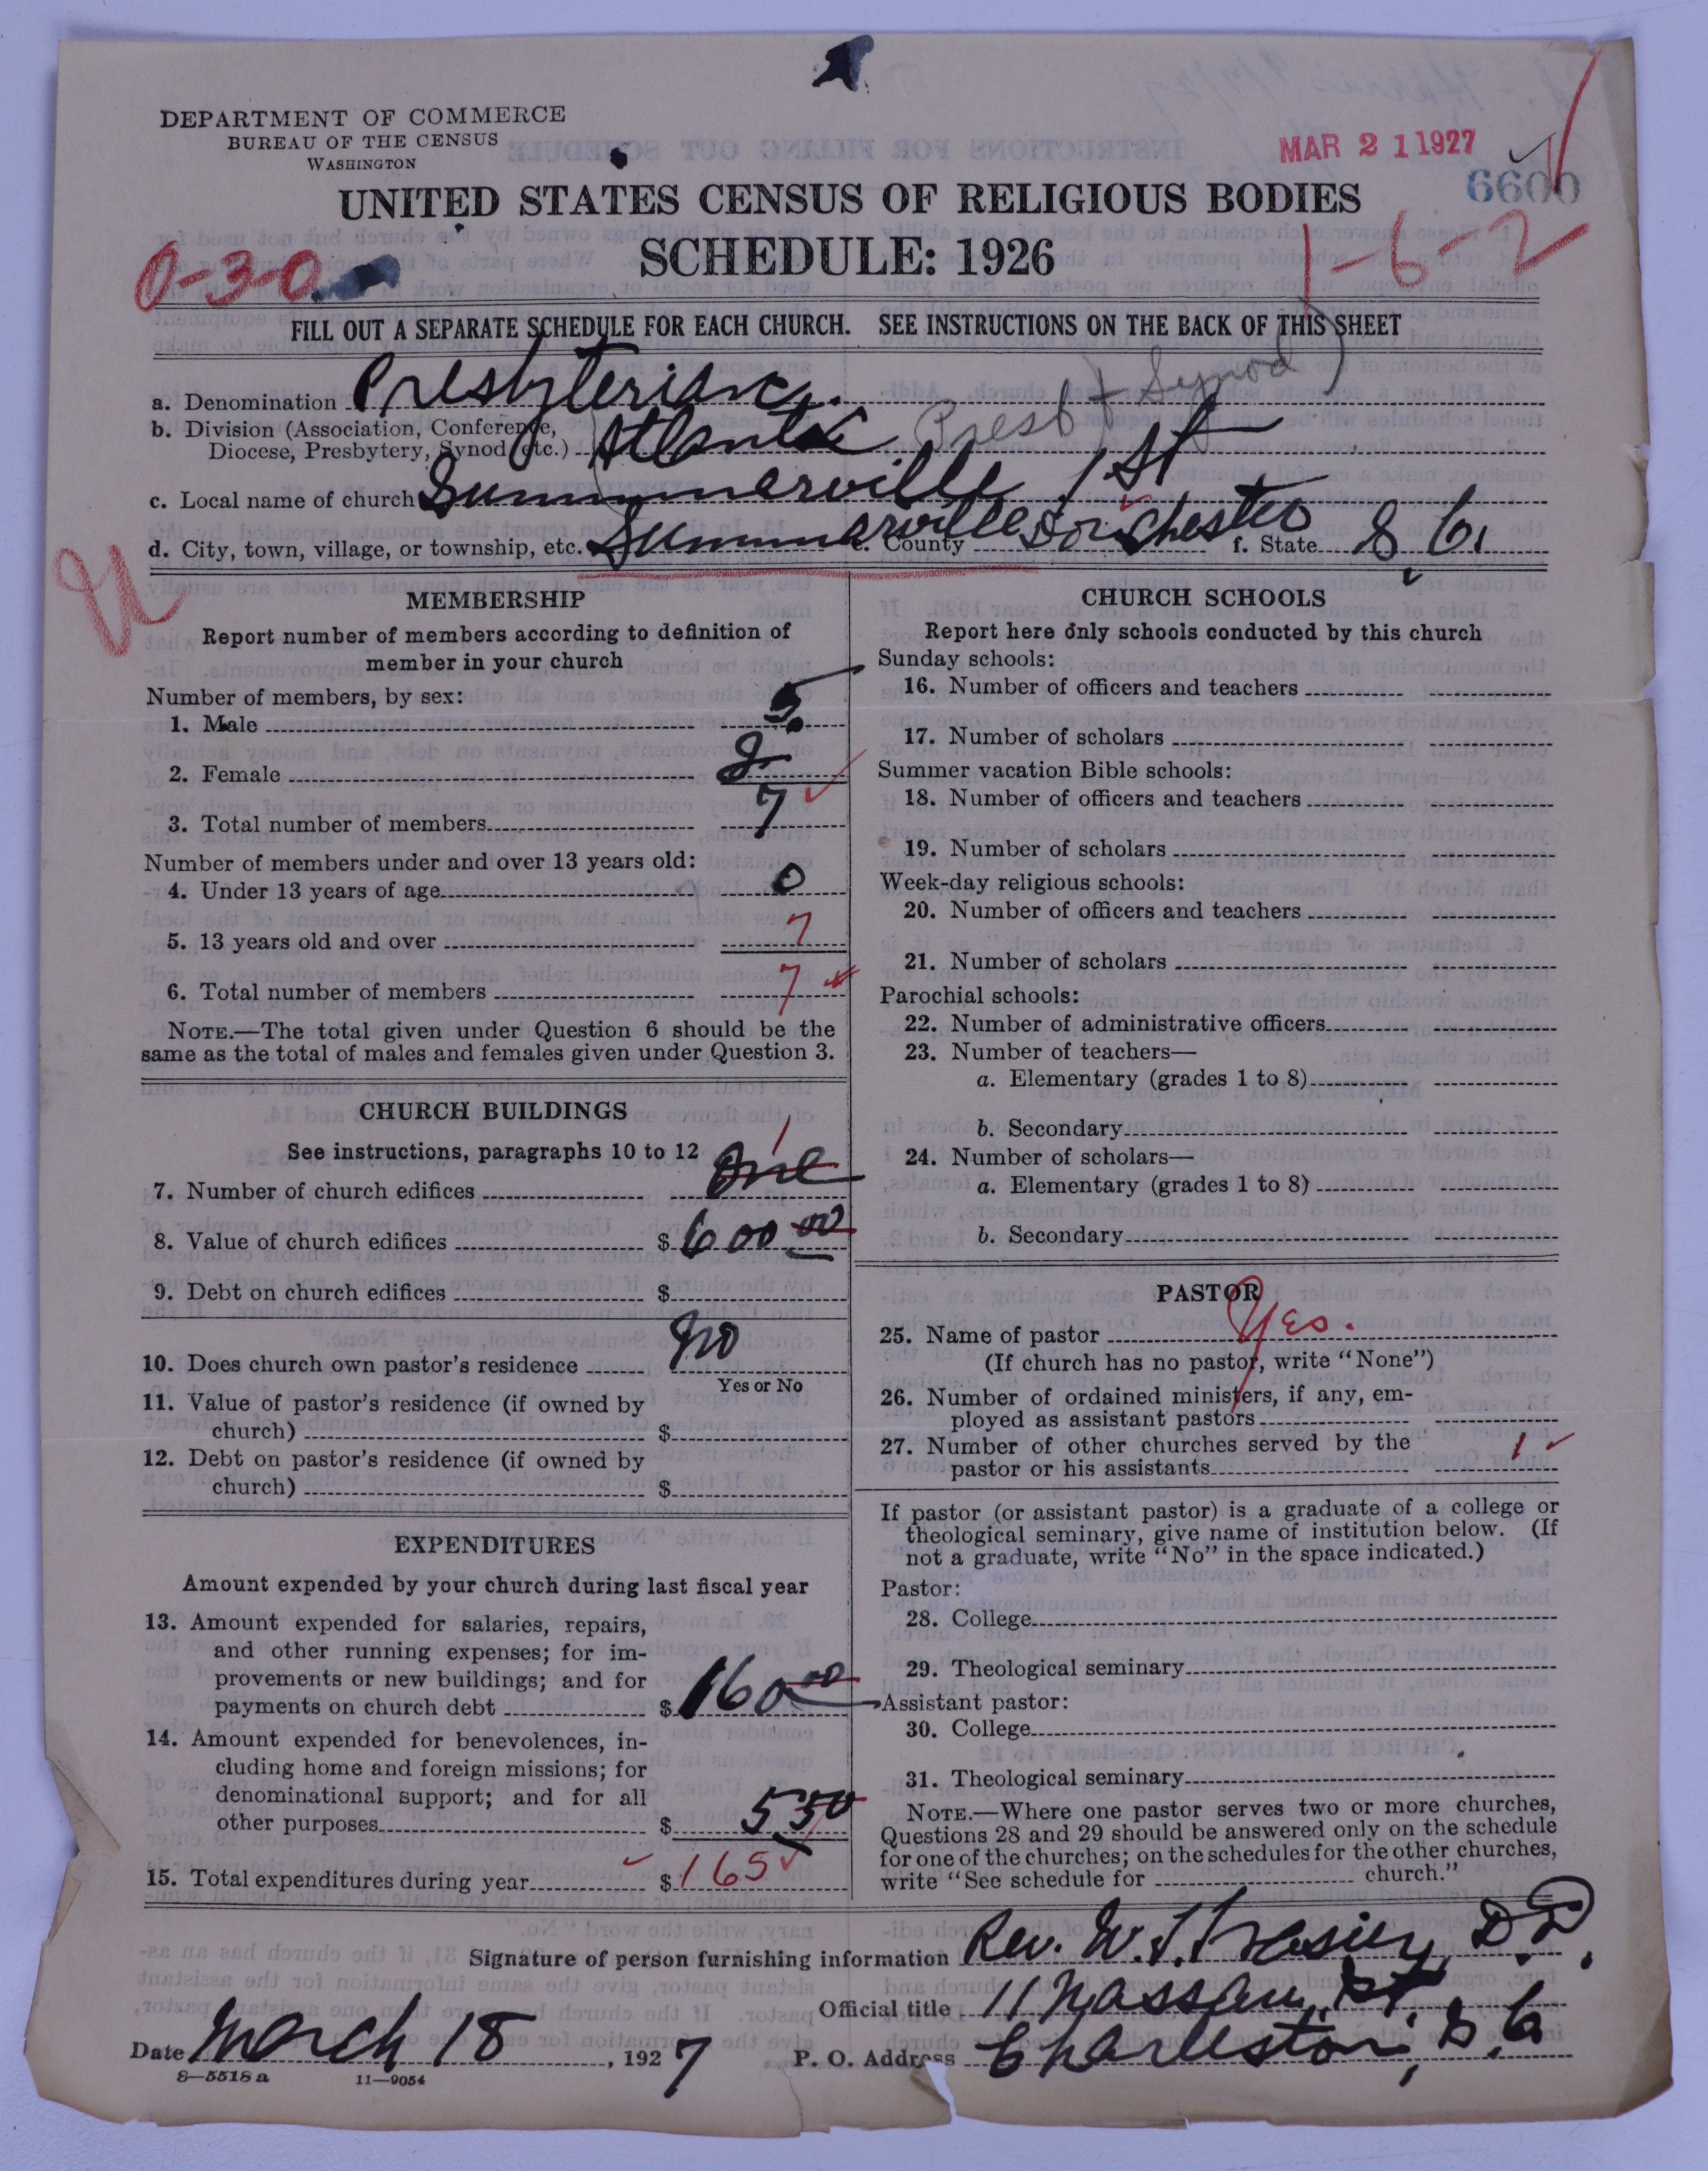 DEPARTMENT OF COMMERCE
BUREAU OF THE CENSUS
WASHINGTON
MAR 21 1927
6600
UNITED STATES CENSUS OF RELIGIOUS BODIES
SCHEDULE: 1926
0-30
1-6-2
FILL OUT A SEPARATE SCHEDULE FOR EACH CHURCH. SEE INSTRUCTIONS ON THE BACK OF THIS SHEET
a. Denomination Presbyterian
b. Division (Association, Conference, Diocese, Presbytery, Synod etc.) Atlantic Presb + Synod
c. Local name of church Summerville 1st
d. City, town, village, or township, etc. Summerville e. County Dorchester f. State S. C.
MEMBERSHIP
Report number of members according to definition of
member in your church
Number of members, by sex:
1. Male 5
2. Female 2
3. Total number of members 7
Number of members under and over 13 years old:
4. Under 13 years of age 0
5. 13 years old and over 7
6. Total number of members 7
NOTE.—The total given under Question 6 should be the
same as the total of males and females given under Question 3.
CHURCH BUILDINGS
See instructions, paragraphs 10 to 12
7. Number of church edifices One 1
8. Value of church edifices $ 600 00
9. Debt on church edifices $
10. Does church own pastor's residence No
Yes or No
11. Value of pastor's residence (if owned by
church) $
12. Debt on pastor's residence (if owned by
church) $
EXPENDITURES
Amount expended by your church during last fiscal year
13. Amount expended for salaries, repairs,
and other running expenses; for im-
provements or new buildings; and for
payments on church debt $ 160 00
14. Amount expended for benevolences, in-
cluding home and foreign missions; for
denominational support; and for all
other purposes $ 5 50
15. Total expenditures during year $ 165
CHURCH SCHOOLS
Report here only schools conducted by this church
Sunday schools:
16. Number of officers and teachers
17. Number of scholars
Summer vacation Bible schools:
18. Number of officers and teachers
19. Number of scholars
Week-day religious schools:
20. Number of officers and teachers
21. Number of scholars
Parochial schools:
22. Number of administrative officers
23. Number of teachers—
a. Elementary (grades 1 to 8)
b. Secondary
24. Number of scholars—
a. Elementary (grades 1 to 8)
b. Secondary
PASTOR
25. Name of pastor Yes.
(If church has no pastor, write "None")
26. Number of ordained ministers, if any, em-
ployed as assistant pastors
27. Number of other churches served by the
pastor or his assistants 1
If pastor (or assistant pastor) is a graduate of a college or
theological seminary, give name of institution below. (If
not a graduate, write "No" in the space indicated.)
Pastor:
28. College
29. Theological seminary
Assistant pastor:
30. College
31. Theological seminary
NOTE.—Where one pastor serves two or more churches,
Questions 28 and 29 should be answered only on the schedule
for one of the churches; on the schedules for the other churches,
write "See schedule for church."
Signature of person furnishing information Rev. W. T. Frasier, D.D.
Official title 11 Nassau St
Date March 18, 1927 P. O. Address Charleston, S. C.
8—5518 a 11—9054